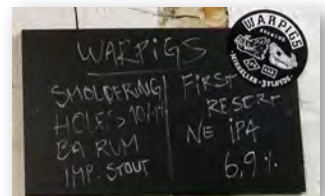 WARPIGS
SMOLDERING
HOLES 10,1%
BA RUM
IMP. STOUT
FIRST
RESORT
NE IPA
6,9%
WARPIGS
BREWING
MIKKELLER · 3 FLOYDS